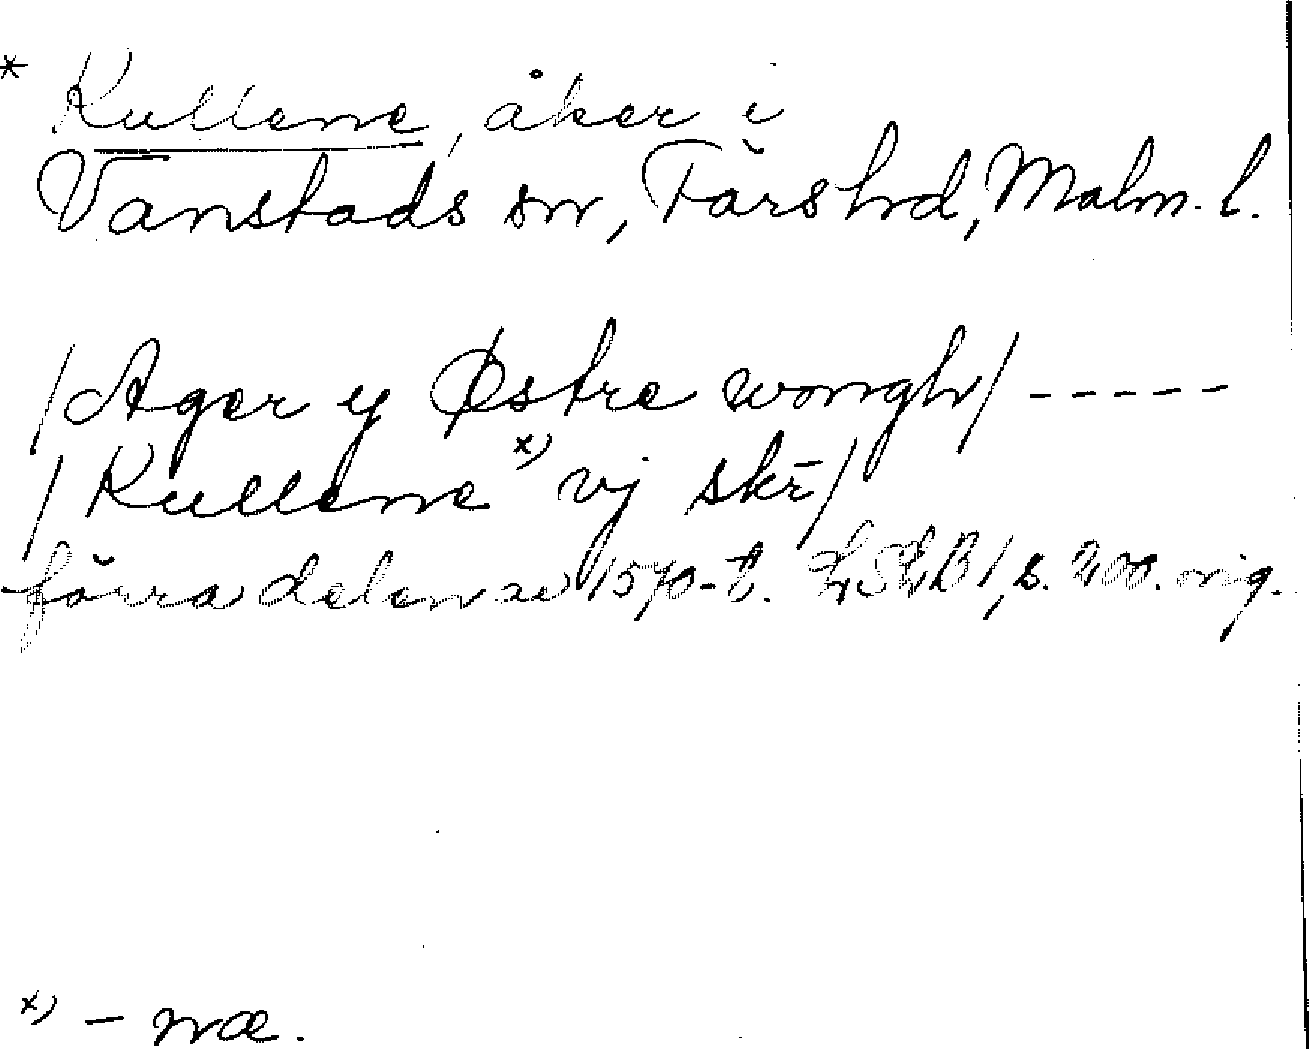 * Kullene, åker i
Vanstads sn, Färs hd, Malm. l.
/Ager y Østre wongh/ -----
/Kullene x) vj skr̄/
förra delen av 1570-t. LSLB 1, s. 200. orig.
x) – næ.